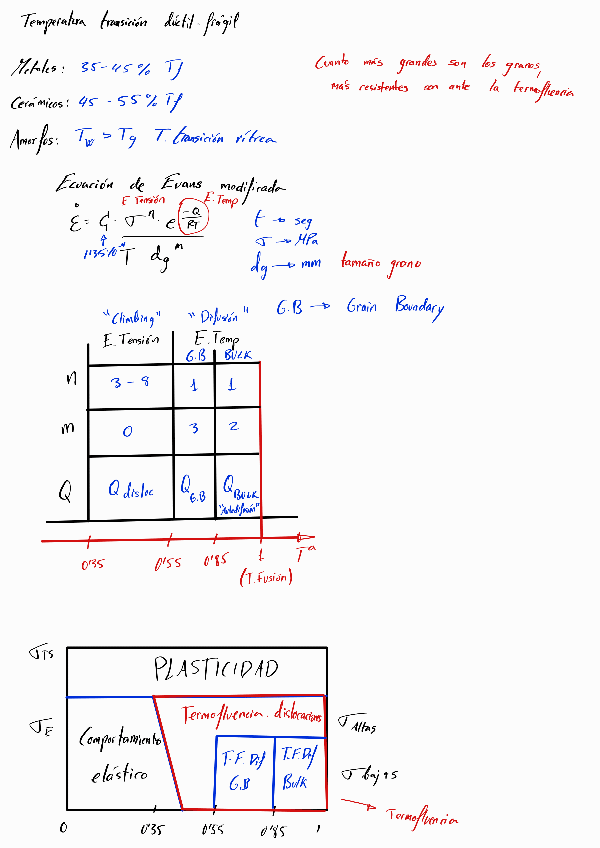 Temperatura transición dúctil-frágil
Metales: 35-45% Tf
Cerámicos: 45-55% Tf
Amorfos: Tw > Tg T. transición vítrea
Cuanto más grandes son los granos,
más resistentes son ante la termofluencia
Ecuación de Evans modificada
E Tensión E.Temp
ε̇ = C₁ · σⁿ · e^(-Q/RT)
T dg^m
t → seg
σ → MPa
dg → mm tamaño grano
G.B → Grain Boundary
"Climbing" "Difusión"
E. Tensión E. Temp
G.B BULK
n 3-8 1 1
m 0 3 2
Q Q disloc Q G.B Q BULK
"Autodifusión"
0'35 0'55 0'85 1 Tª
(T. Fusión)
σTS PLASTICIDAD
σE Termofluencia dislocaciones σ Altas
Comportamiento
elástico
T.F. Dif
G.B
T.F. Dif
Bulk
σ bajas
Termofluencia
0 0'35 0'55 0'85 1